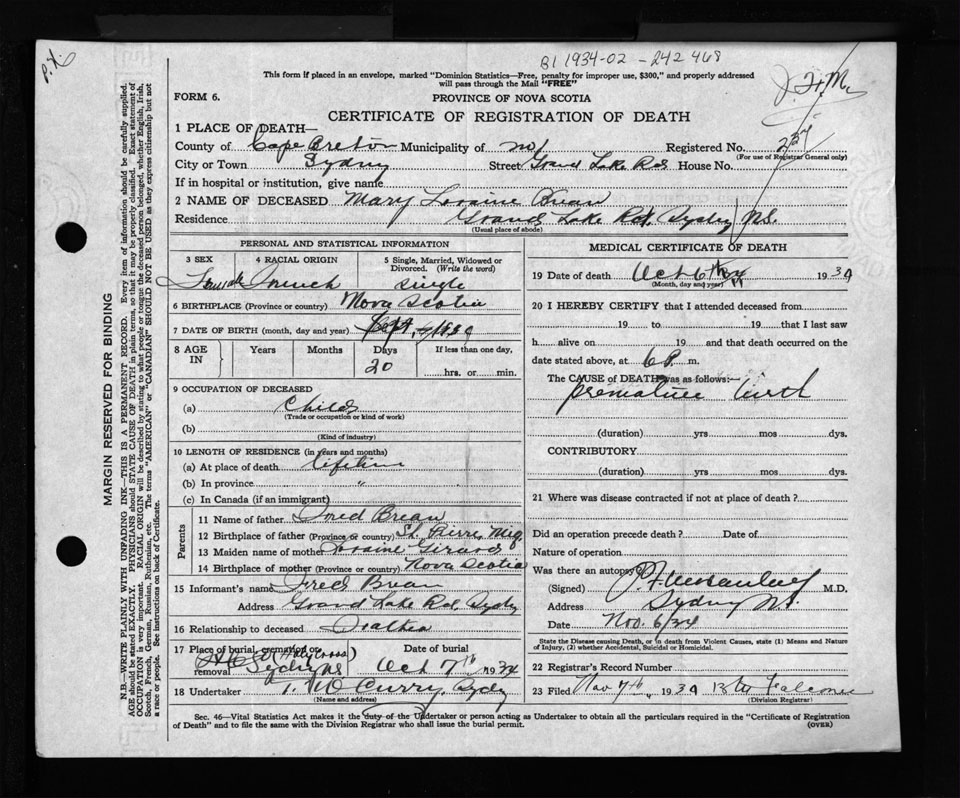 P.X.
81 1934-02 - 242 468
This form if placed in an envelope, marked "Dominion Statistics—Free, penalty for improper use, $300," and properly addressed
will pass through the Mail "FREE"
FORM 6.
PROVINCE OF NOVA SCOTIA
CERTIFICATE OF REGISTRATION OF DEATH
1 PLACE OF DEATH—
County of Cape Breton Municipality of Registered No. 237
(For use of Registrar General only)
City or Town Sydney Street Grand Lake Rd House No.
If in hospital or institution, give name
2 NAME OF DECEASED Mary Loraine Brean
Residence Grand Lake Rd, Sydney, N.S.
(Usual place of abode)
PERSONAL AND STATISTICAL INFORMATION
3 SEX Female
4 RACIAL ORIGIN French
5 Single, Married, Widowed or Divorced. (Write the word) Single
6 BIRTHPLACE (Province or country) Nova Scotia
7 DATE OF BIRTH (month, day and year) Sept.
8 AGE IN Years Months Days 20 If less than one day, hrs. or min.
9 OCCUPATION OF DECEASED
(a) Child
(Trade or occupation or kind of work)
(b)
(Kind of industry)
10 LENGTH OF RESIDENCE (in years and months)
(a) At place of death lifetime
(b) In province "
(c) In Canada (if an immigrant)
Parents
11 Name of father Fred Brean
12 Birthplace of father (Province or country) St. Pierre, Miq.
13 Maiden name of mother Loraine Girard
14 Birthplace of mother (Province or country) Nova Scotia
15 Informant's name Fred Brean
Address Grand Lake Rd, Sydney
16 Relationship to deceased Father
17 Place of burial, cremation or removal Holy Cross Sydney NS
Date of burial Oct 7th 1934
18 Undertaker T. W. Curry, Sydney
(Name and address)
MEDICAL CERTIFICATE OF DEATH
19 Date of death Oct 6th 1934
(Month, day and year)
20 I HEREBY CERTIFY that I attended deceased from
19 to 19 that I last saw
h alive on 19 and that death occurred on the
date stated above, at 6 P. m.
The CAUSE of DEATH was as follows:
Premature birth
(duration) yrs mos dys.
CONTRIBUTORY
(duration) yrs mos dys.
21 Where was disease contracted if not at place of death?
Did an operation precede death? Date of
Nature of operation
Was there an autopsy
(Signed) M.D.
Address Sydney N.S.
Date Nov. 6/34
State the Disease causing Death, or in death from Violent Causes, state (1) Means and Nature
of Injury, (2) whether Accidental, Suicidal or Homicidal.
22 Registrar's Record Number
23 Filed Nov 7th, 1934 Falconer
(Division Registrar)
Sec. 46—Vital Statistics Act makes it the duty of the Undertaker or person acting as Undertaker to obtain all the particulars required in the "Certificate of Registration
of Death" and to file the same with the Division Registrar who shall issue the burial permit. (OVER)
MARGIN RESERVED FOR BINDING
N.B.—WRITE PLAINLY WITH UNFADING INK—THIS IS A PERMANENT RECORD. Every item of information should be carefully supplied.
AGE should be stated EXACTLY. PHYSICIANS should STATE CAUSE OF DEATH in plain terms, so that it may be properly classified. Exact statement of
OCCUPATION is very important. RACIAL ORIGIN will be described by stating to what people or tongue the deceased person belonged, whether English, Irish,
Scotch, French, German, Russian, Ruthenian, etc. The terms "AMERICAN" or "CANADIAN" SHOULD NOT BE USED as they express citizenship but not
a race or people. See instructions on back of Certificate.